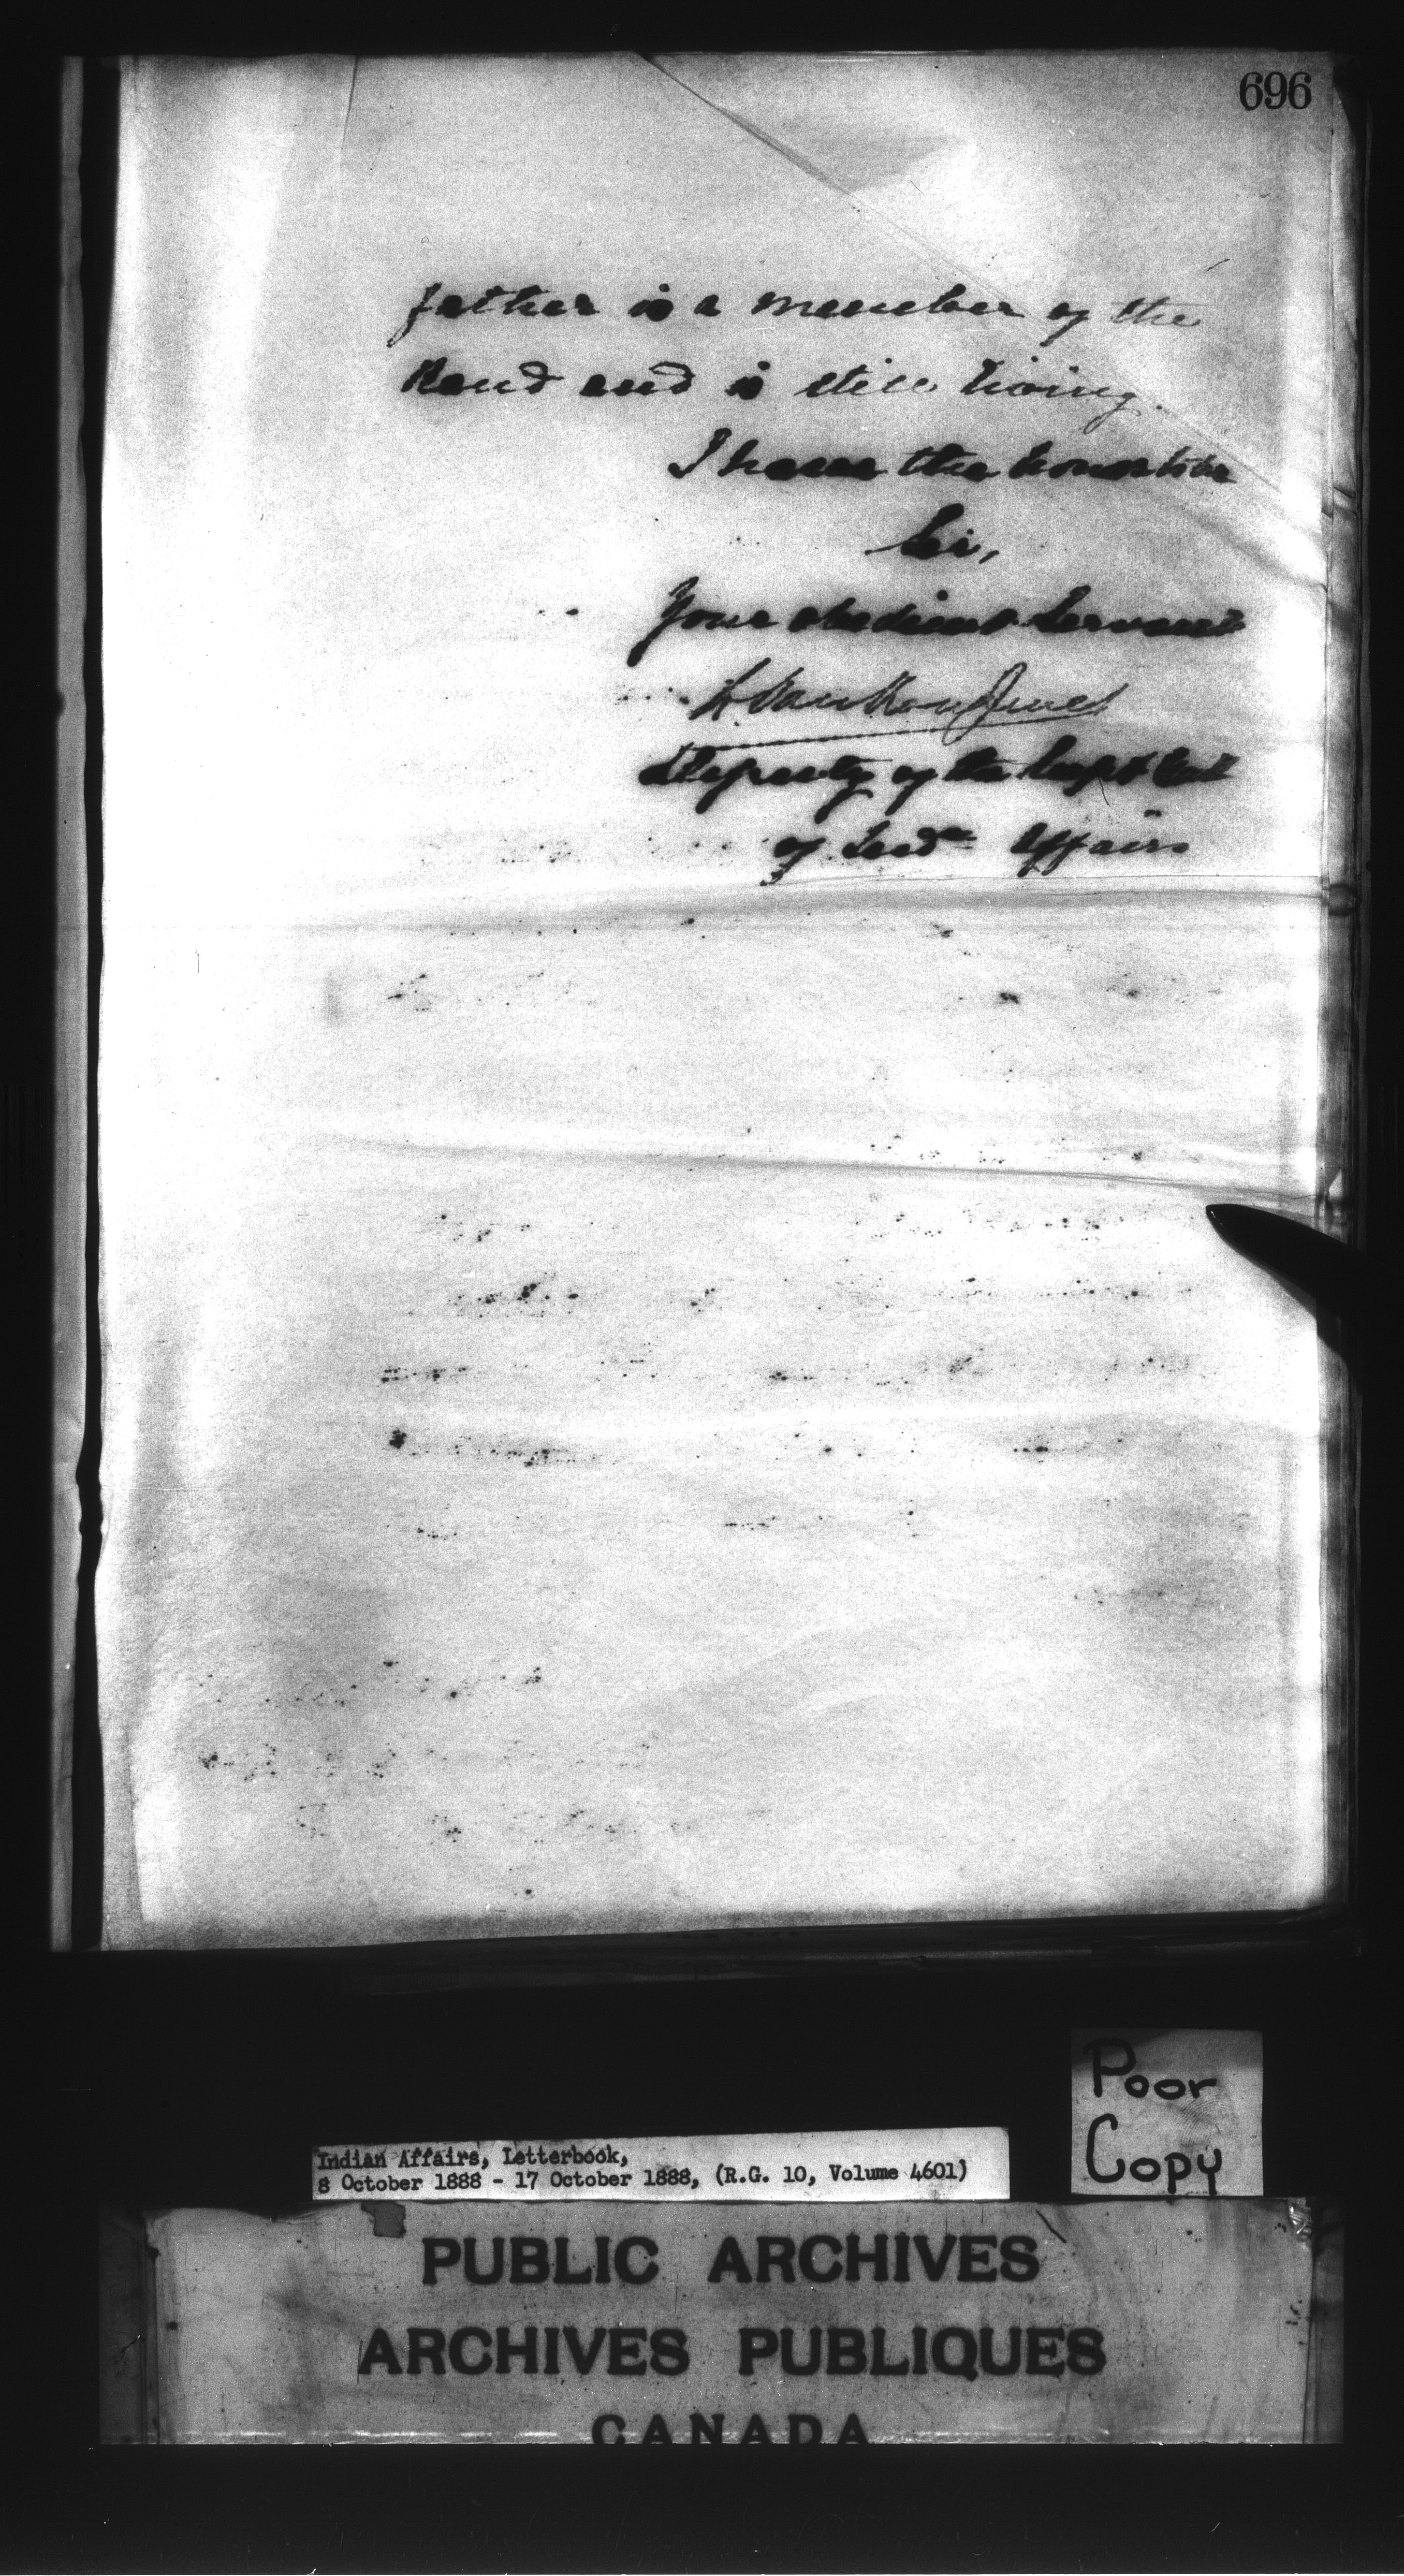 696
father is a member of the
Band and is still living.
I have the honor to be
Sir,
Your obedient Servant
L. VanKoughnet
Deputy of the Supt Genl
of Indn Affairs
Poor
Copy
Indian Affairs, Letterbook,
8 October 1888 - 17 October 1888, (R.G. 10, Volume 4601)
PUBLIC ARCHIVES
ARCHIVES PUBLIQUES
CANADA